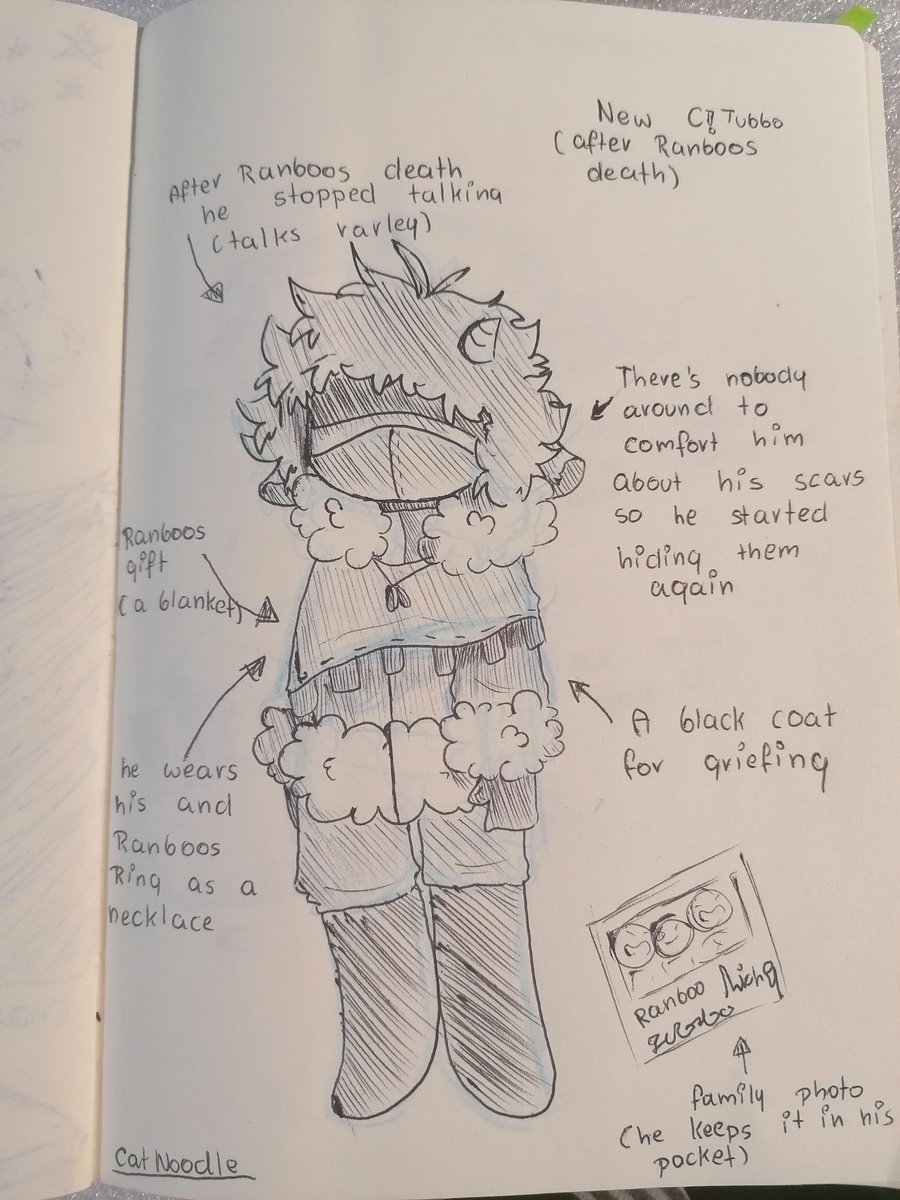 New C!Tubbo
(after Ranboos
death)
After Ranboos death
he stopped talking
(talks rarley)
There's nobody
around to
comfort him
about his scars
so he started
hiding them
again
Ranboos
gift
(a blanket)
A black coat
for griefing
he wears
his and
Ranboos
Ring as a
necklace
Ranboo
family photo
(he keeps it in his
pocket)
Cat Noodle